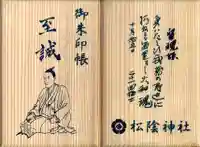 御朱印帳
至誠
留魂録
身はたとひ武蔵の野辺に
朽ぬとも留置まし大和魂
十月念五日
二十一回猛士
松陰神社